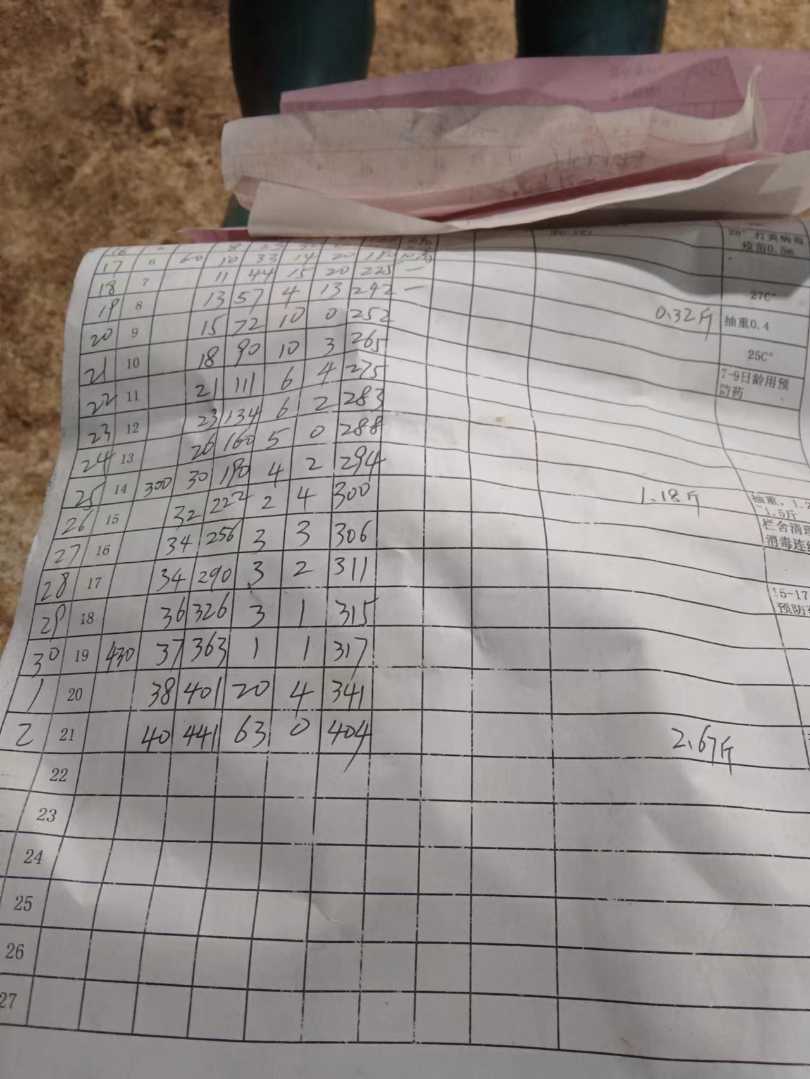 17 6 60 10 33 14 20
疫苗0.5m
18 7 11 44 15 20 225 —
27C°
19 8 13 57 4 13 242 —
0.32斤 抽重0.4
20 9 15 72 10 0 252
25C°
21 10 18 90 10 3 265
7-9日龄用预
防药
22 11 21 111 6 4 275
23 12 23 134 6 2 283
24 13 26 160 5 0 288
25 14 300 30 190 4 2 294
1.18斤 抽重,1.2
1.5斤
26 15 32 222 2 4 300
栏舍清理
消毒连续
27 16 34 256 3 3 306
28 17 34 290 3 2 311
15-17
预防
29 18 36 326 3 1 315
30 19 430 37 363 1 1 317
1 20 38 401 20 4 341
2 21 40 441 63 0 404 2.67斤
22
23
24
25
26
27